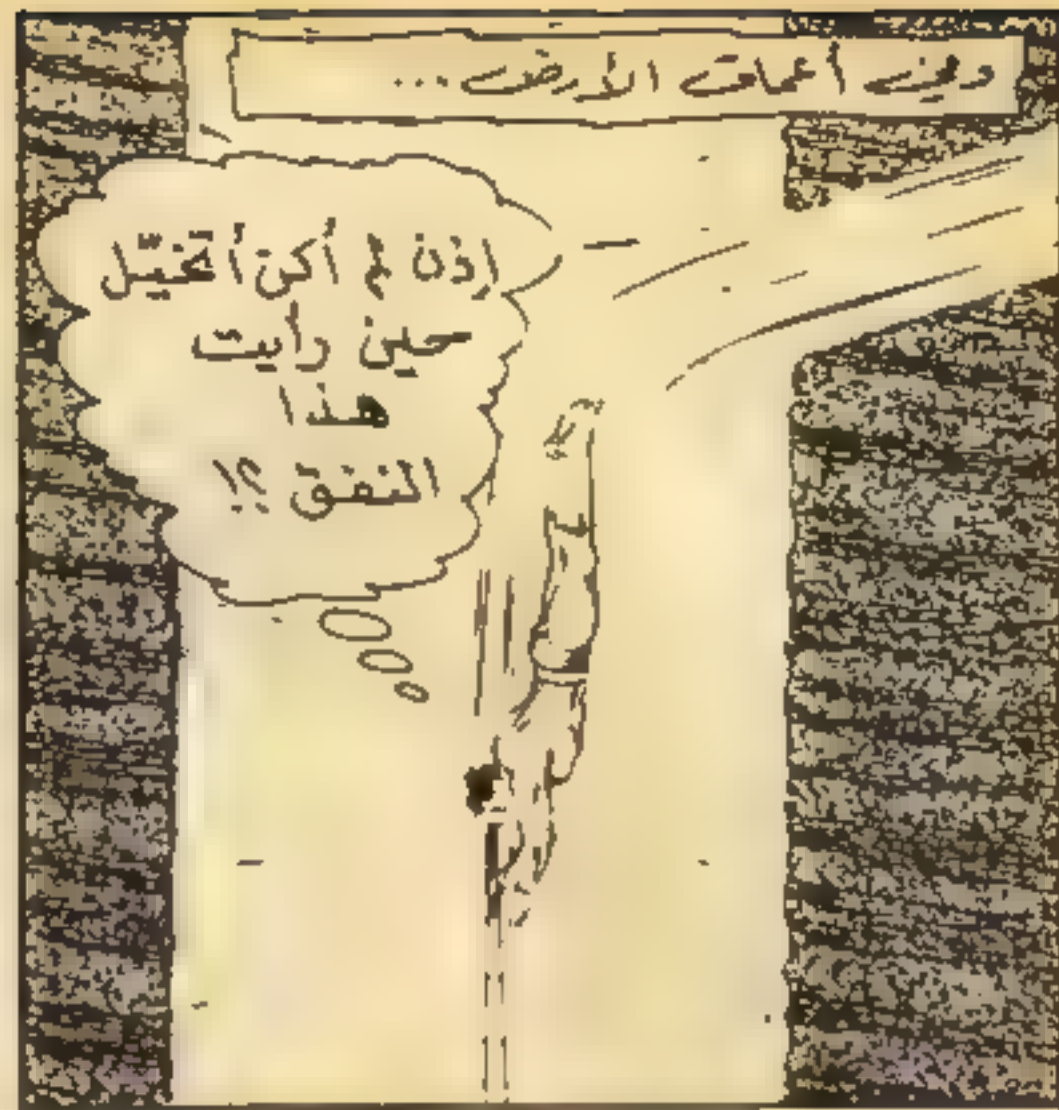 وفي أعماق الأرض...
إذن لم أكن أتخيّل
حين رأيت
هذا
النفق ؟!